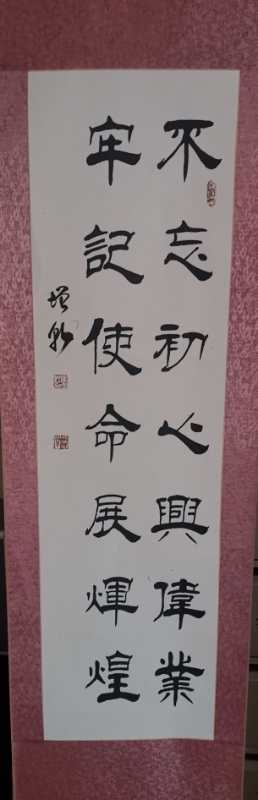 不忘初心興偉業
牢記使命展輝煌